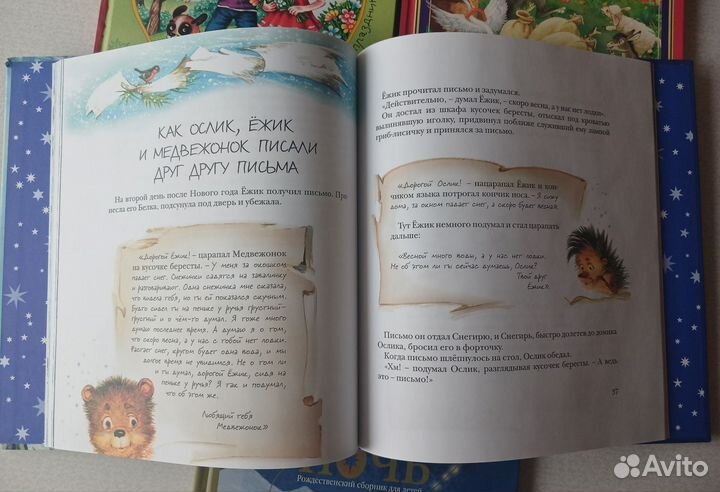 праздник
КАК ОСЛИК, ЁЖИК
И МЕДВЕЖОНОК ПИСАЛИ
ДРУГ ДРУГУ ПИСЬМА
На второй день после Нового года Ёжик получил письмо. При
несла его Белка, подсунула под дверь и убежала.
«Дорогой Ёжик! – царапал Медвежонок
на кусочке бересты. – У меня за окошком
падает снег. Снежинки садятся на завалинку
и разговаривают. Одна снежинка мне сказала,
что видела тебя, но ты ей показался скучным,
будто сидел ты на пеньке у ручья грустный-
грустный и о чём-то думал. Я тоже много
думаю последнее время. А думаю я о том,
что скоро весна, а у нас с тобой нет лодки.
Растает снег, кругом будет одна вода, и мы
долго время не увидимся. Не о том ли
и ты думал, дорогой Ёжик, сидя на
пеньке у ручья? Я так и подумал,
что об этом же.
Любящий тебя
Медвежонок»
Ёжик прочитал письмо и задумался.
«Действительно, – думал Ёжик, – скоро весна, а у нас нет лодки».
Он достал из шкафа кусочек бересты, отыскал под кроватью
вылинявшую иголку, придвинул поближе служивший ему лампой
гриб-лисичку и принялся за письмо.
«Дорогой Ослик! – нацарапал Ёжик и кон-
чиком языка потрогал кончик носа. – Я сижу
дома, за окном падает снег, а скоро будет весна».
Тут Ёжик немного подумал и стал царапать
дальше:
«Весной много воды, а у нас нет лодки.
Не об этом ли ты сейчас думаешь, Ослик?
Твой друг
Ёжик».
Письмо он отдал Снегирю, и Снегирь, быстро долетев до домика
Ослика, бросил его в форточку.
Когда письмо шлёпнулось на стол, Ослик обедал.
«Хм! – подумал Ослик, разглядывая кусочек бересты. – А ведь
это – письмо!»
37
НОЧЬ
Рождественский сборник для детей
Avito